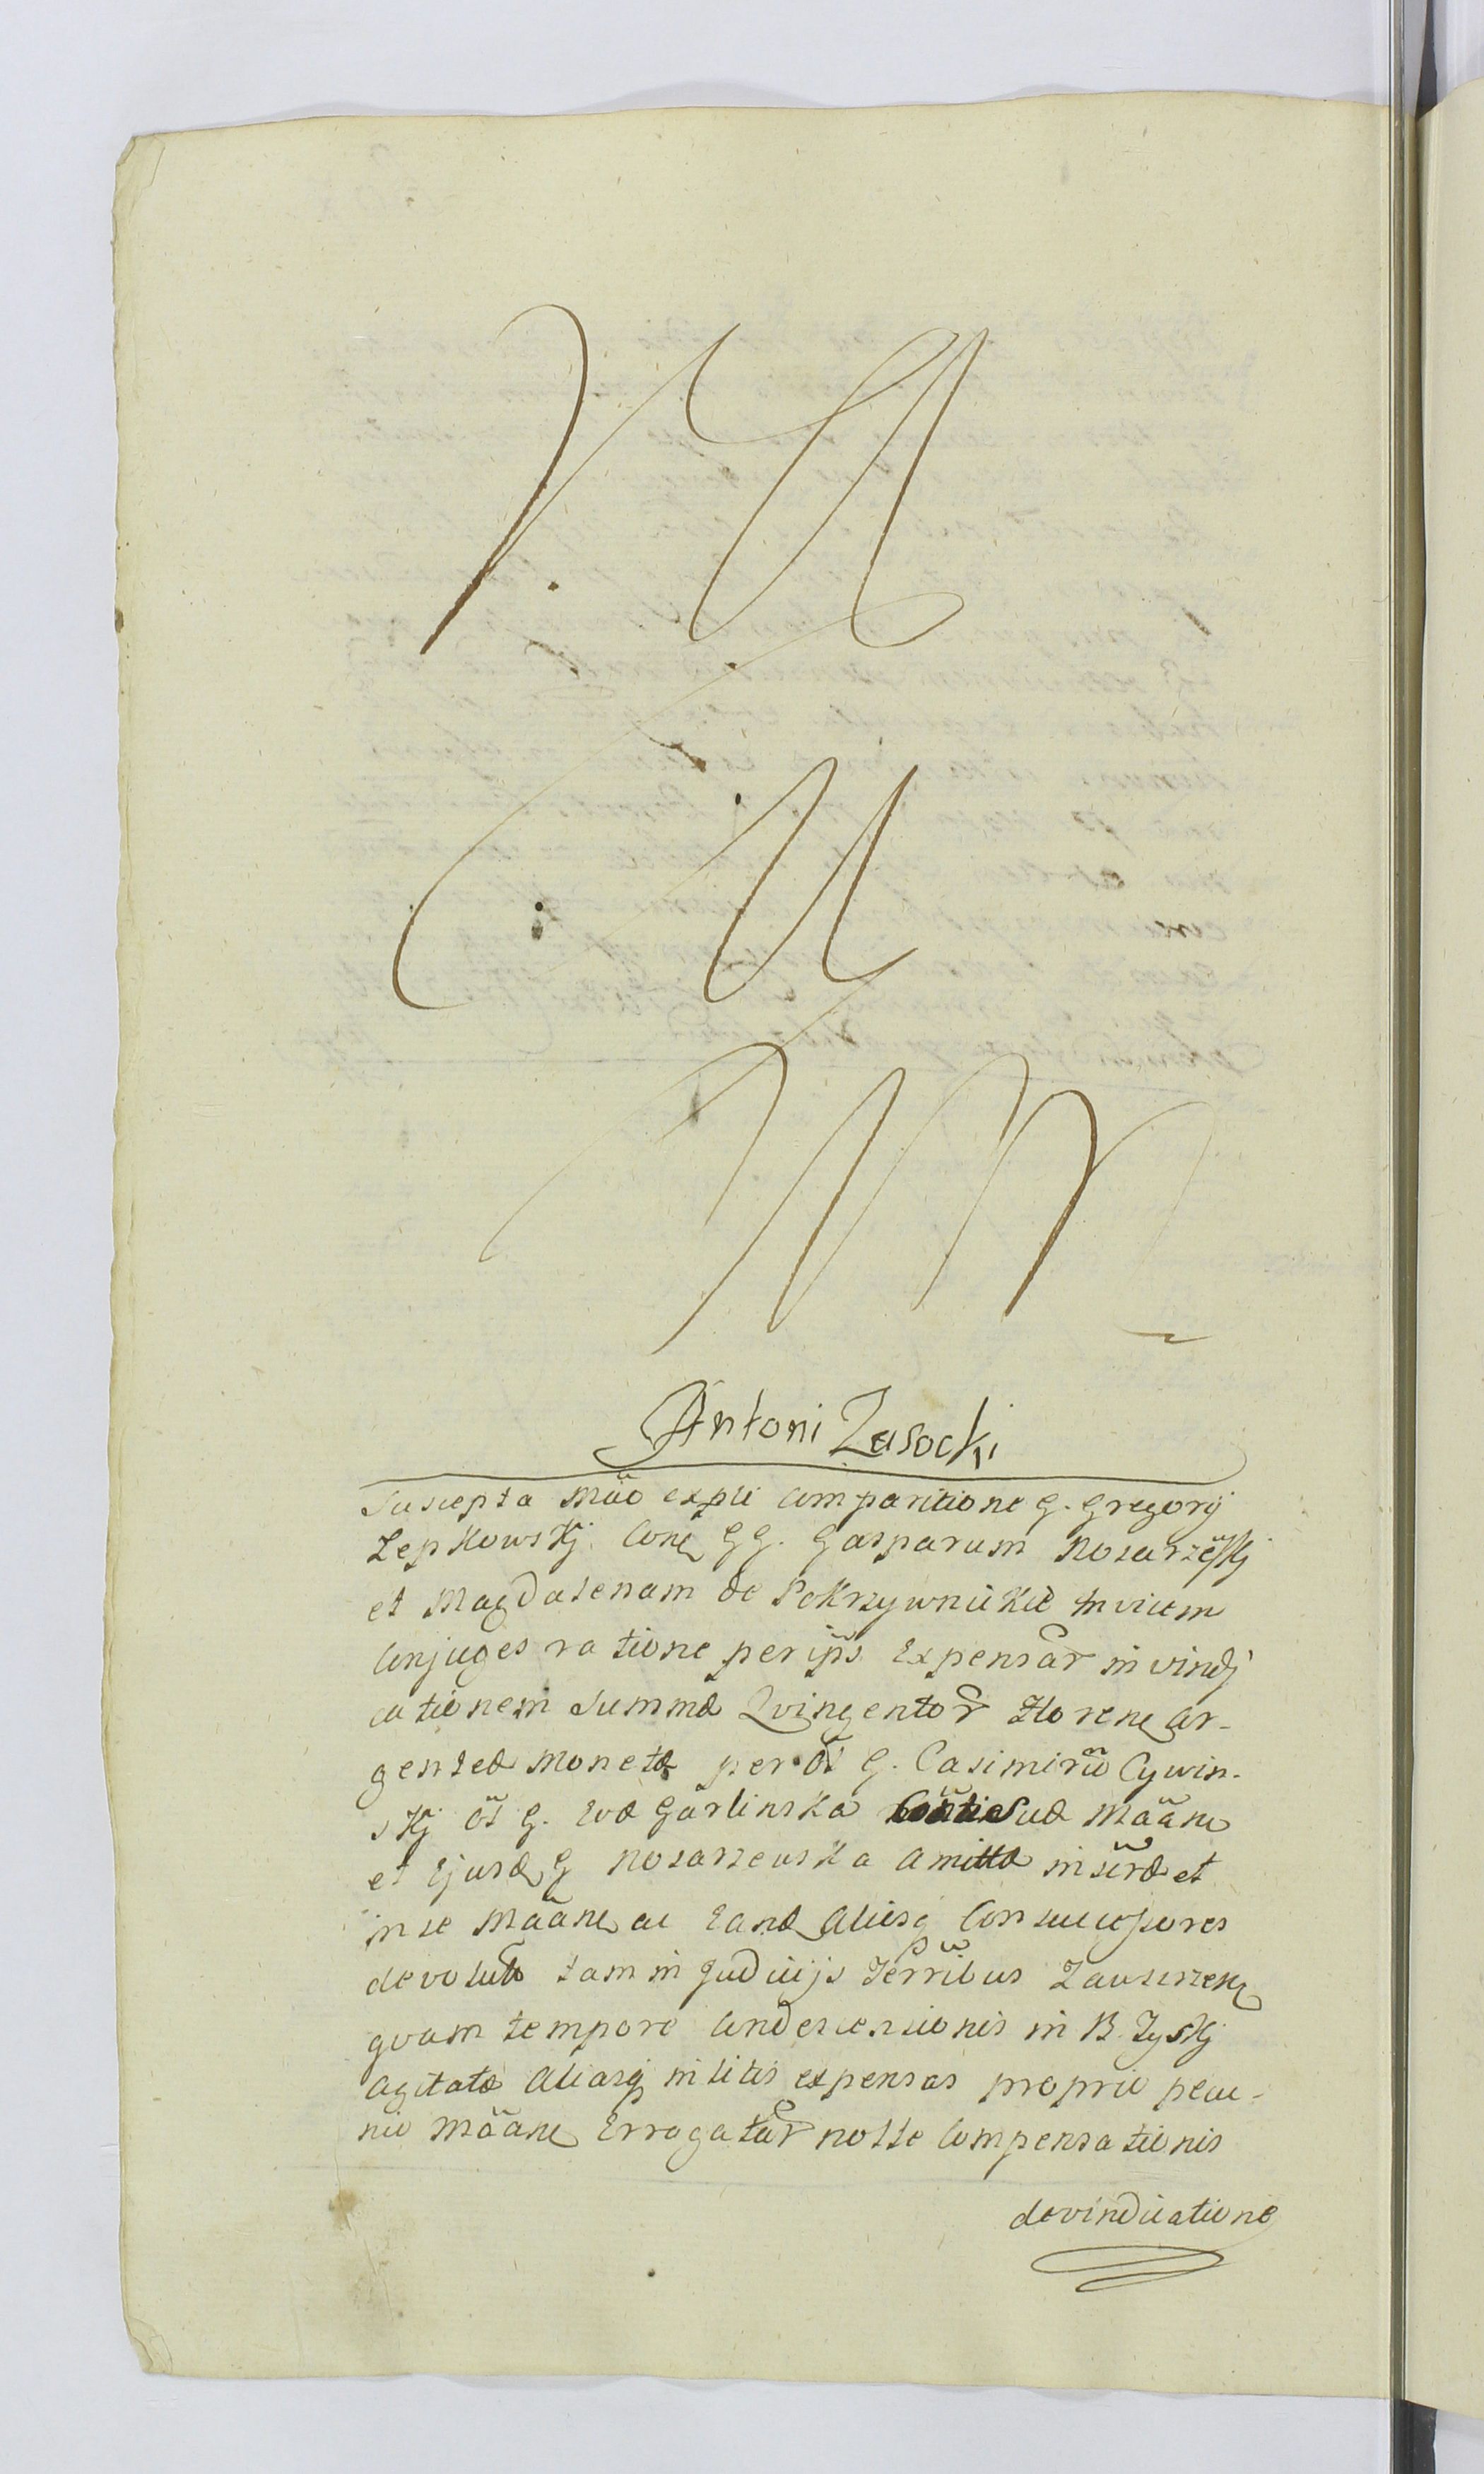 V. M
M
M
Antoni Zasocki
Suscepta mäo expli comparitione G. Gregorij
Zepkowskj Conc GG. Gasparum Nosarzeskj
et Magdalenam de Pokrzywnickie invicem
Conjuges ratione per ips Expensar in vindj
cationem Summæ Qvingentor Floren Ar-
genteæ Monetæ per ol G. Casimirū Cywin-
skj ol G. Evæ Garlinska Suæ Määne
et Ejusd G Nosarzewska Amittæ in sirdæ et
in se Määne ac Eand Aliosq Consuccessores
devolut tam in Judicijs Terribus Zawscrzen
qvam tempore Condescensionis in B. Zyskj
agitatæ aliasq in litis expensas propria pecu-
nia Määne Errogatar nolle Compensationis
devindicatione